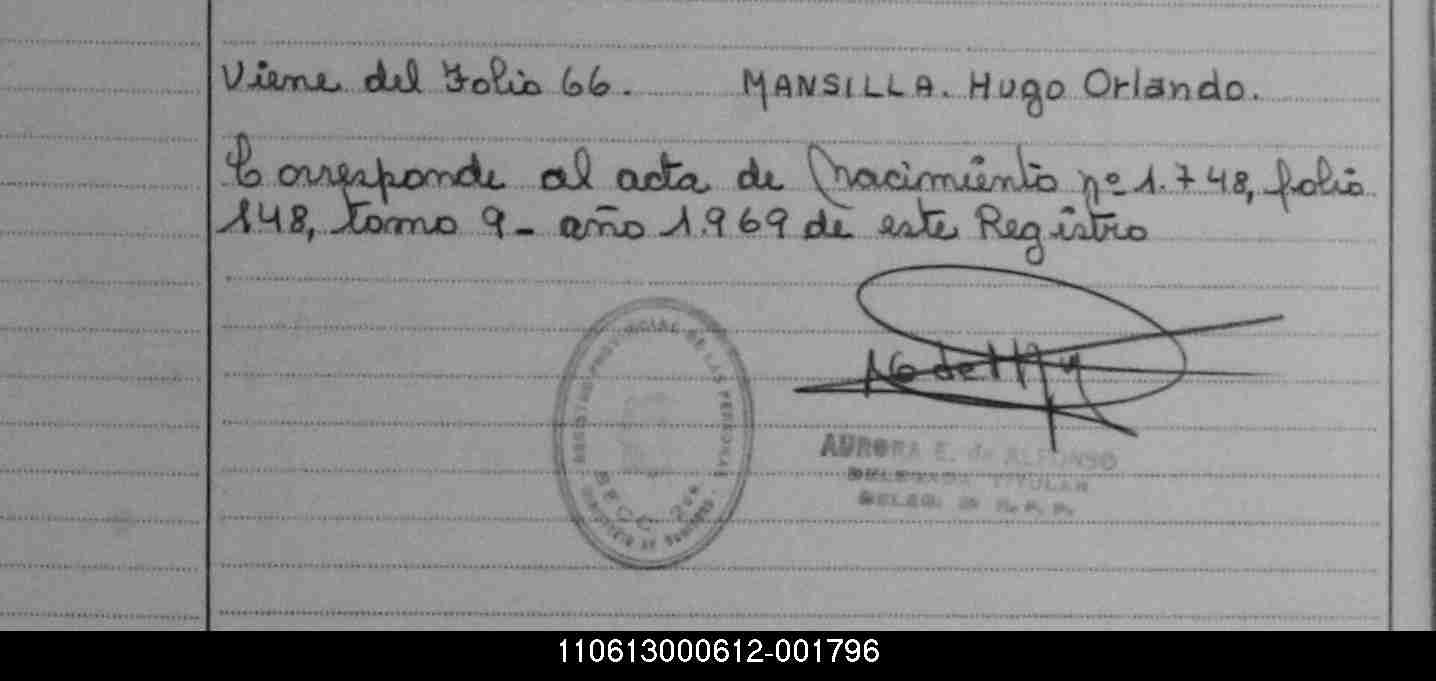 Viene del Folio 66. MANSILLA. Hugo Orlando.
Corresponde al acta de Nacimiento nº 1.748, folio
148, tomo 9 - año 1.969 de este Registro
REGISTRO PROVINCIAL DE LAS PERSONAS
SECC. 2da
AURORA E. de ALFONSO
DELEGADA TITULAR
DELEG. R. P. P.
110613000612-001796